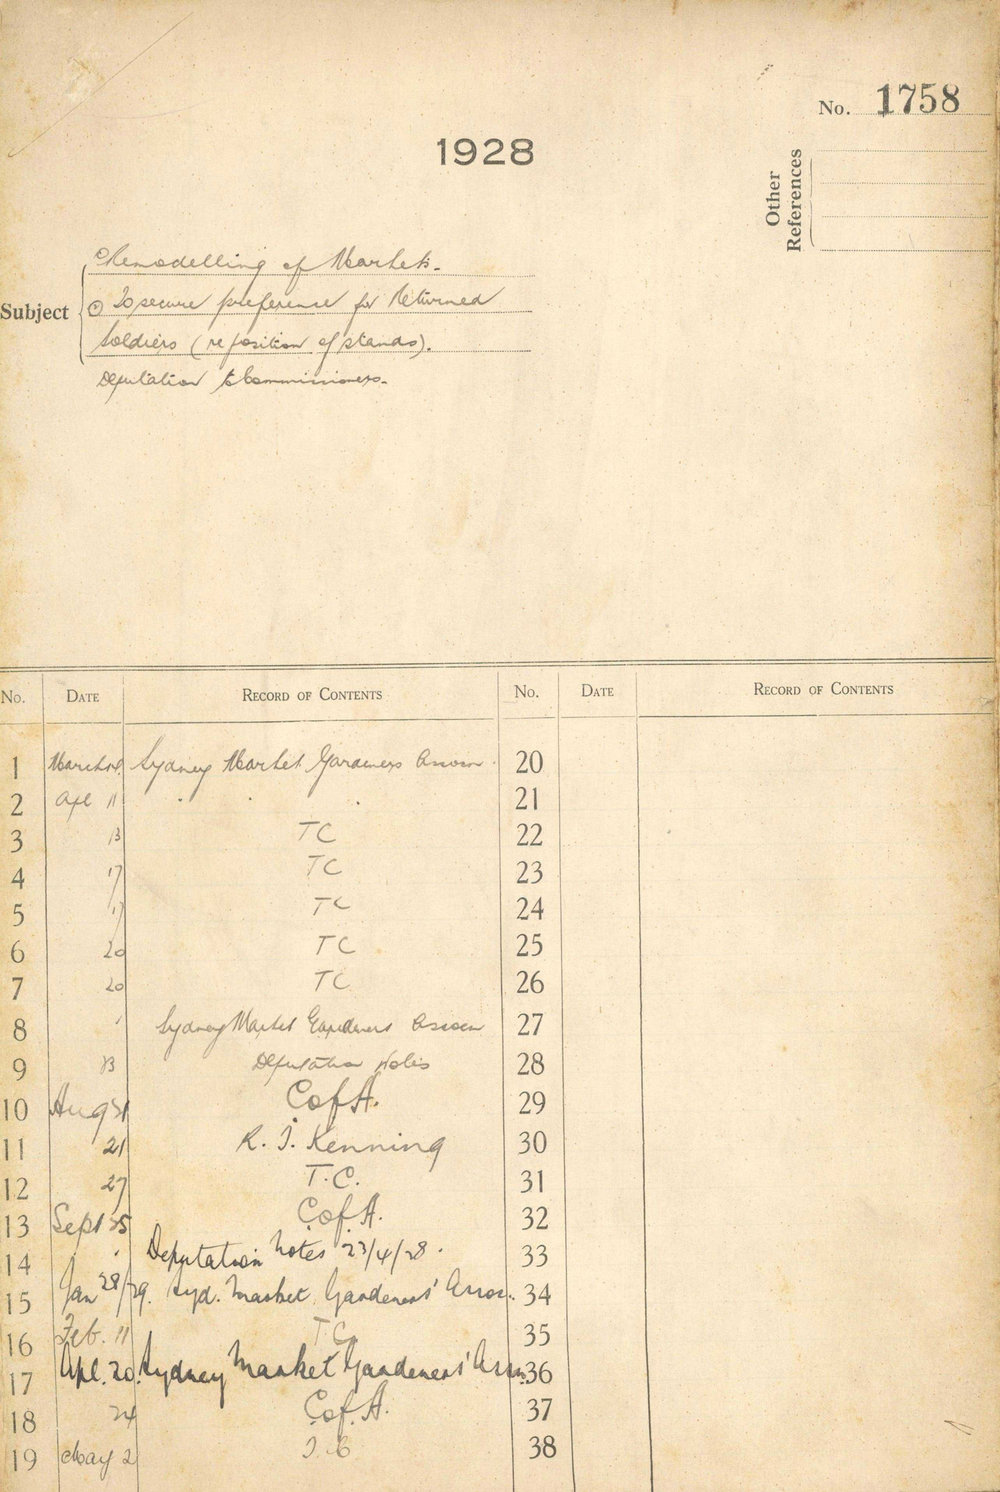 No. 1758
1928
Other
References
Subject
Remodelling of Markets.
To secure preference for Returned
Soldiers (re position of stands).
Deputation to Commissioners.
No. DATE RECORD OF CONTENTS No. DATE RECORD OF CONTENTS
1 March Sydney Market Gardeners Assocn. 20
2 Apl 11 " " " 21
3 13 TC 22
4 17 TC 23
5 17 TC 24
6 20 TC 25
7 20 TC 26
8 " Sydney Market Gardeners Assocn 27
9 23 Deputation Notes 28
10 Aug 21 C of A. 29
11 21 R. J. Kenning 30
12 27 T.C. 31
13 Sept 25 C. of A. 32
14 " Deputation Notes 23/4/28. 33
15 Jan 28/29. Syd. Market Gardeners' Assoc. 34
16 Feb. 11 T.C. 35
17 Apl. 20. Sydney Market Gardeners' Assn. 36
18 24 C. of A. 37
19 May 2 T.C 38